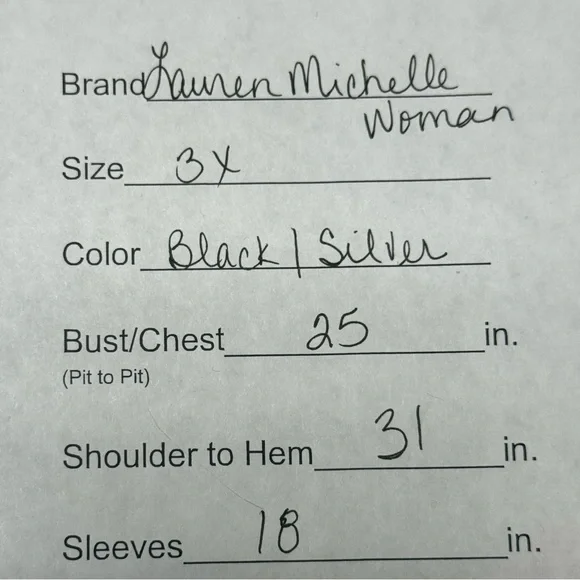 Brand Lauren Michelle
Woman
Size 3X
Color Black / Silver
Bust/Chest 25 in.
(Pit to Pit)
Shoulder to Hem 31 in.
Sleeves 18 in.